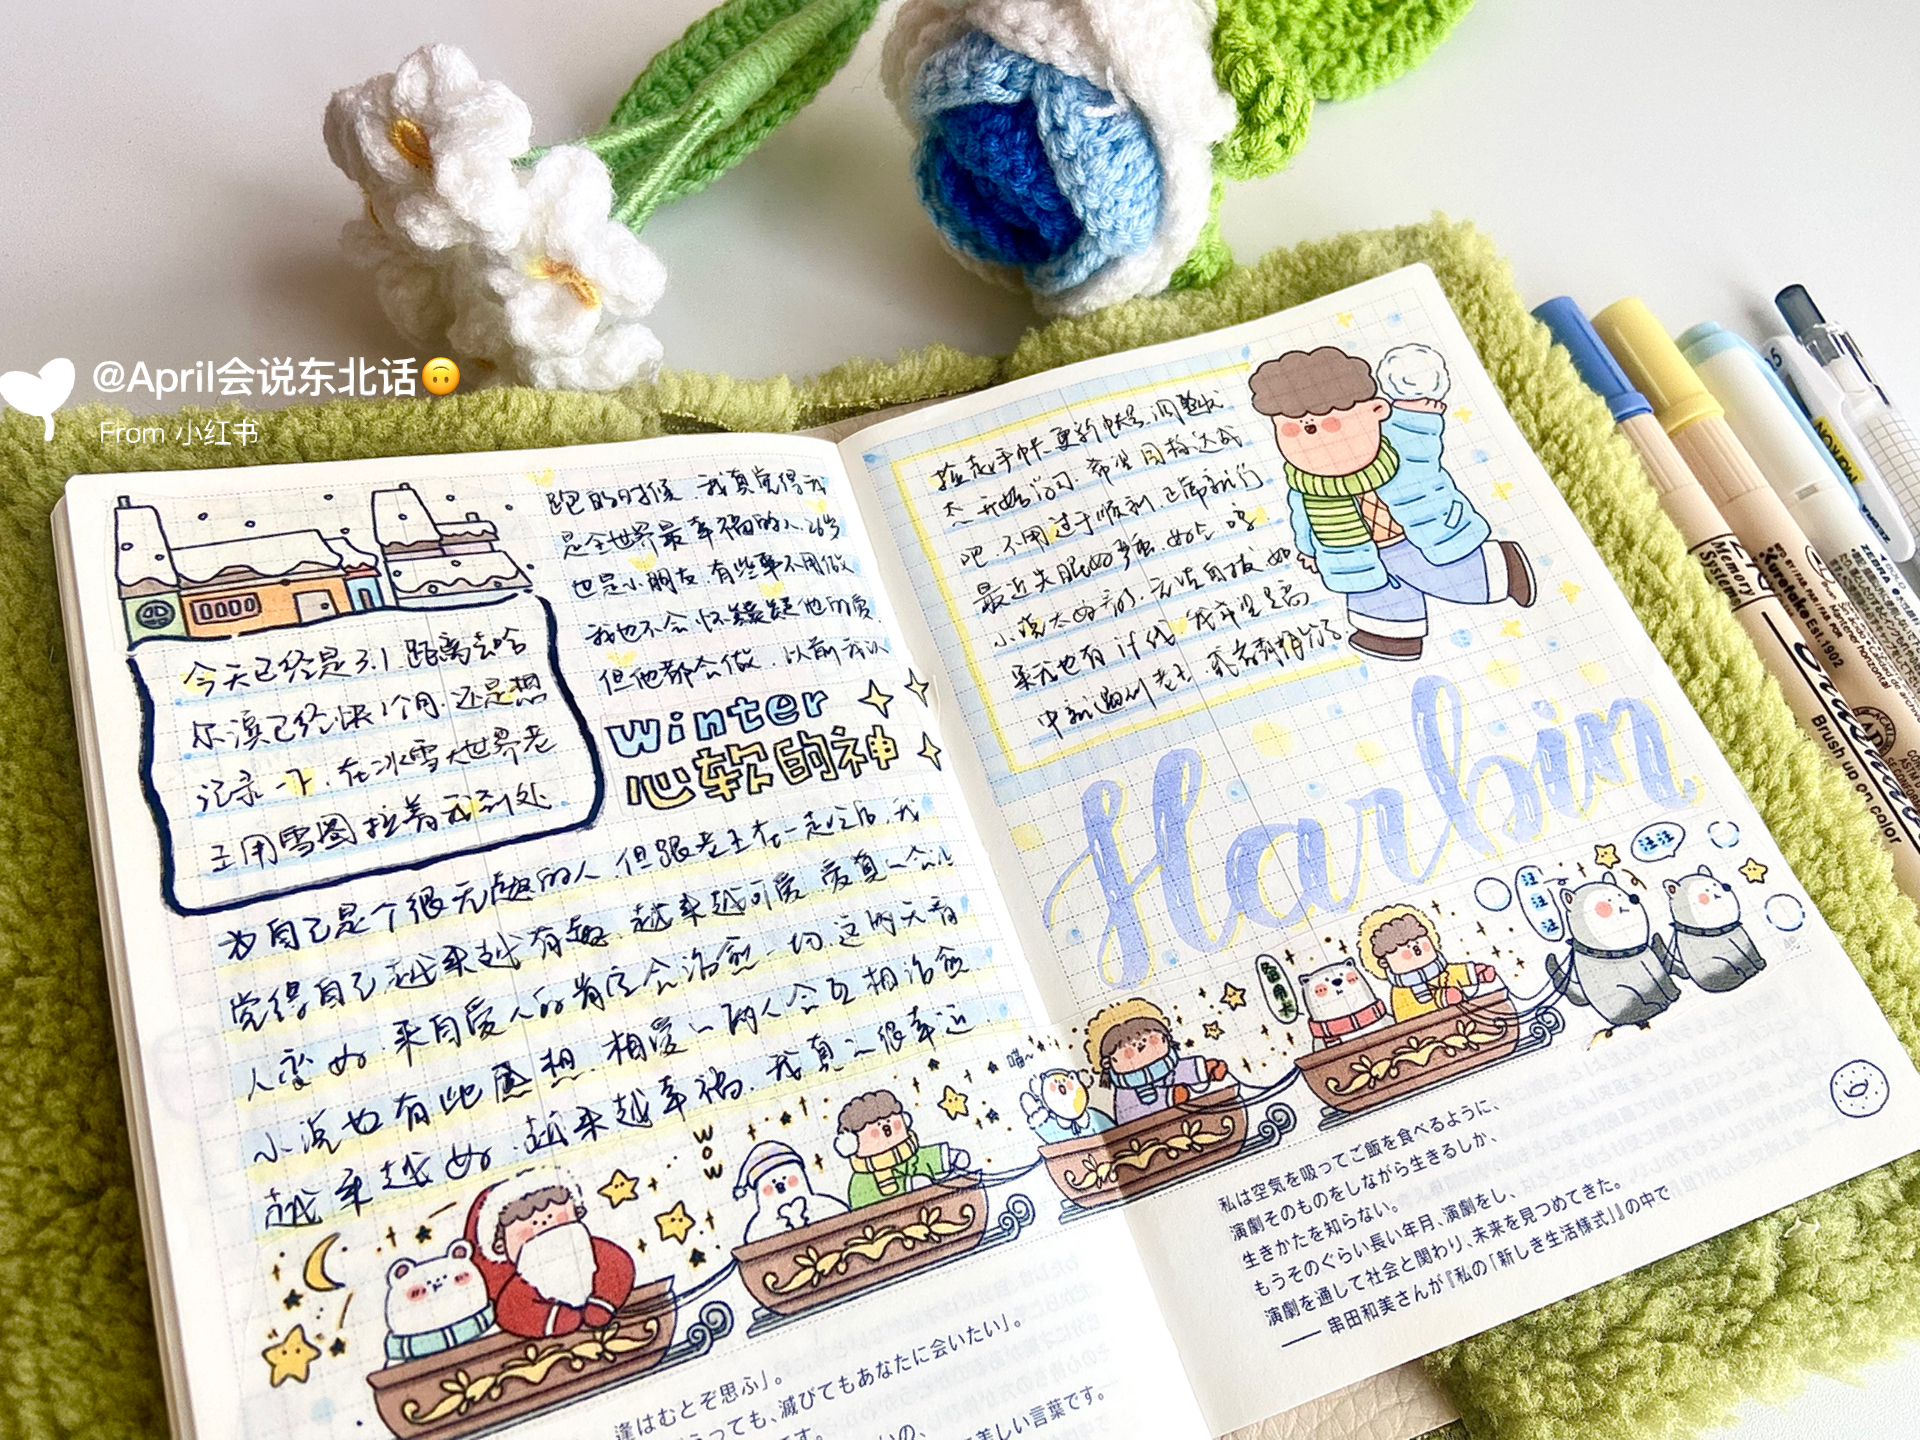 @April会说东北话🙃
From 小红书
今天已经是3.1 距离去哈
尔滨已经快1个月.还是想
记录一下.在冰雪大世界老
王用雪圈拉着我到处
跑的时候.我真觉得我
是全世界最幸福的人.26岁
也是小朋友.有些事不用做
我也不会怀疑他的爱.
但他都会做.以前我以
winter
心软的神
为自己是个很无趣的人.但跟老王在一起以后.我
觉得自己越来越有趣.越来越可爱.爱真的会让
人变好.来自爱人的肯定会治愈一切.这两天看
小说也有此感想.相爱的两人会互相治愈
越来越好.越来越幸福.我真的很幸运.
捡起手帐.更新帐号.调整状
态.开始学习.希望目标达成
吧.不用过于顺利.正常就行
最近失眠好严重.好在
小说太好看.无法自拔.如
果我也有
中就遇到老王.
Harbin
wow
喵~
汪汪
汪汪汪
私は空気を吸ってご飯を食べるように、
演劇そのものをしながら生きるしか、
生きかたを知らない。
もうそのぐらい長い年月、演劇をし、
演劇を通して社会と関わり、未来を見つめてきた。
—— 串田和美さんが『私の「新しき生活様式」』の中で
逢はむとぞ思ふ」。
っても、滅びてもあなたに会いたい」。
美しい言葉です。
Memory System
Kuretake
Brush up on color
ZEBRA